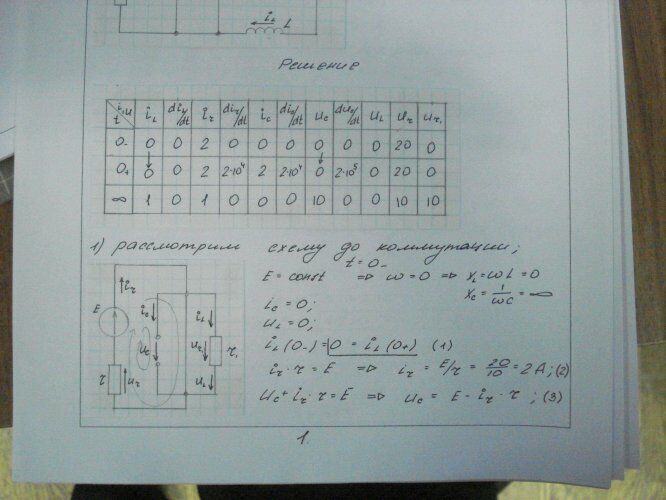 i_L L
Решение
i,u t i_L di_L/dt i_r di_r/dt i_c di_c/dt u_c du_c/dt u_L u_r u_r1
0- 0 0 2 0 0 0 0 0 0 20 0
0+ 0 0 2 2·10⁴ 2 2·10⁴ 0 2·10⁵ 0 20 0
∞ 1 0 1 0 0 0 10 0 0 10 10
1) рассмотрим схему до коммутации;
t = 0-
E = const => ω = 0 => X_L = ωL = 0
X_c = 1/ωC = ∞
i_c = 0;
u_L = 0;
i_L (0-) = 0 = i_L (0+) (1)
i_r · r = E => i_r = E/r = 20/10 = 2 A; (2)
u_c + i_r · r = E => u_c = E - i_r · r ; (3)
i_r
E i_c i_L
u_c u_r r₁
r u_r u_L
1.